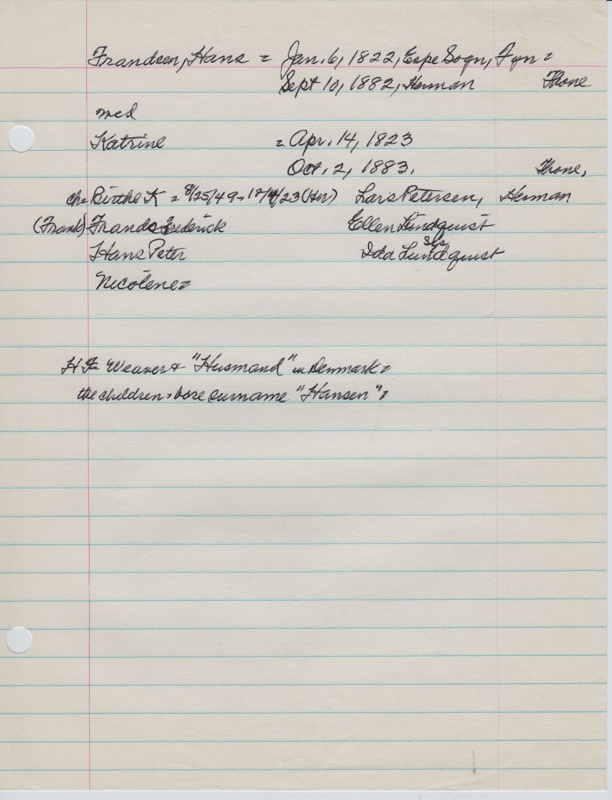 Frandsen, Hans = Jan. 6, 1822, Espe Sogn, Fyn =
Sept 10, 1882, Herman Thone
med
Katrine = Apr. 14, 1823
Oct. 2, 1883. Thone,
ch = Birthe K = 8/25/49 - 12/14/23 (Her) Lars Petersen, Herman
(Frank) Frands Frederick Ellen Lindquist
Hans Peter Ida Lundquist
Nicolene =
H F = Weaver + "Husmand" in Denmark =
the children = bore surname "Hansen" =